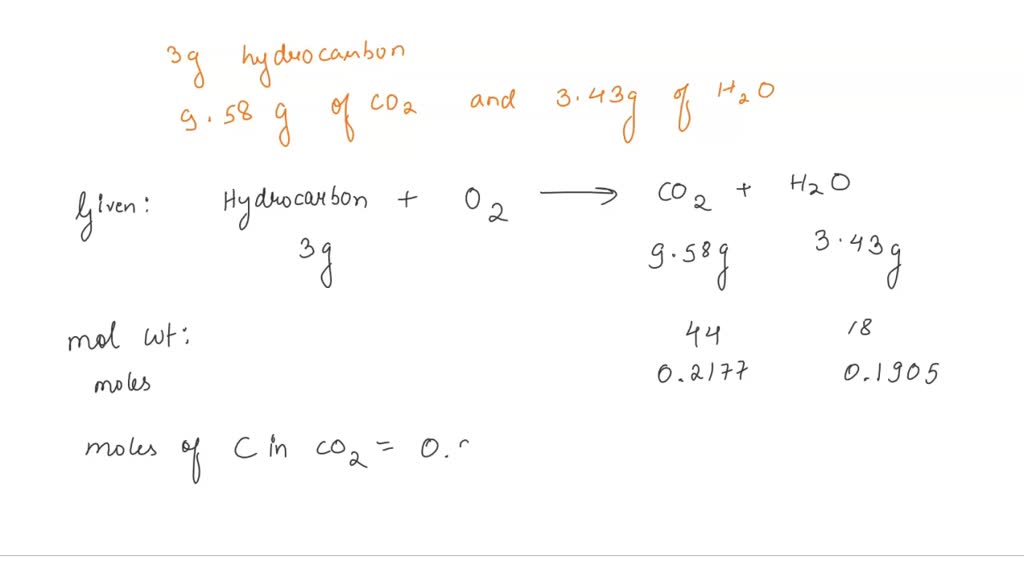 3g hydrocarbon
9.58 g of CO2 and 3.43g of H2O
Given: Hydrocarbon + O2 ⟶ CO2 + H2O
3g 9.58g 3.43g
mol wt: 44 18
moles 0.2177 0.1905
moles of C in CO2 = 0.